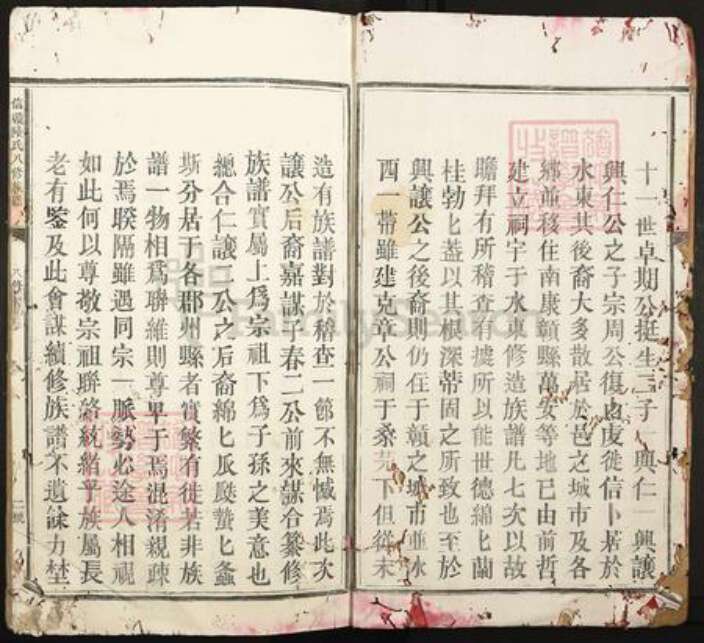 十一世卓期公挺生二子一興仁一興讓
興仁公之子宗周公復由虔徙信卜居於
水東其後裔大多散居於邑之城市及各
鄉並移住南康贛縣萬安等地已由前哲
建立祠宇于水東修造族譜凡七次以故
瞻拜有所稽查有據所以能世德綿匕蘭
桂勃匕蓋以其根深蒂固之所致也至於
興讓公之後裔則仍住于贛之城市並水
西一帶雖建克章公祠于桑芫下但從未
造有族譜對於稽查一節不無憾焉此次
讓公后裔嘉謀子春二公前來謀合纂修
族譜實屬上爲宗祖下爲子孫之美意也
總合仁讓二公之后裔綿匕瓜瓞蟄匕螽
斯分居于各郡州縣者實繁有徒若非族
譜一物相爲聯維則尊卑于焉混淆親疎
於焉睽隔雖遇同宗一脈勢必途人相視
如此何以尊敬宗祖聯絡統緒乎族屬長
老有鑒及此會謀續修族譜不遺餘力堃
氏八修族譜
FamilySearch